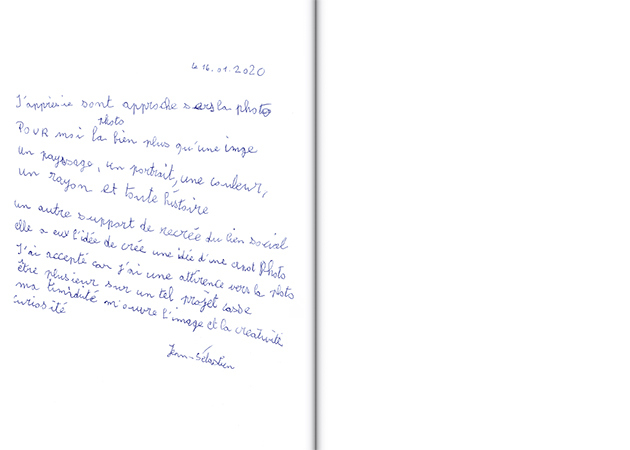 le 16.01.2020
J'apprécie sont approche vers la photo
photo
POUR moi la bien plus qu'une image
un paysage, un portrait, une couleur,
un rayon et toute histoire
un autre support de recrée du lien social
elle a eux l'idée de crée une idée d'une photo
J'ai accepté car j'ai une attirence vers la photo
être plusieur sur un tel projet casse
ma timidité m'ouvre l'image et la creativité
curiosité
Jean-Sébastien